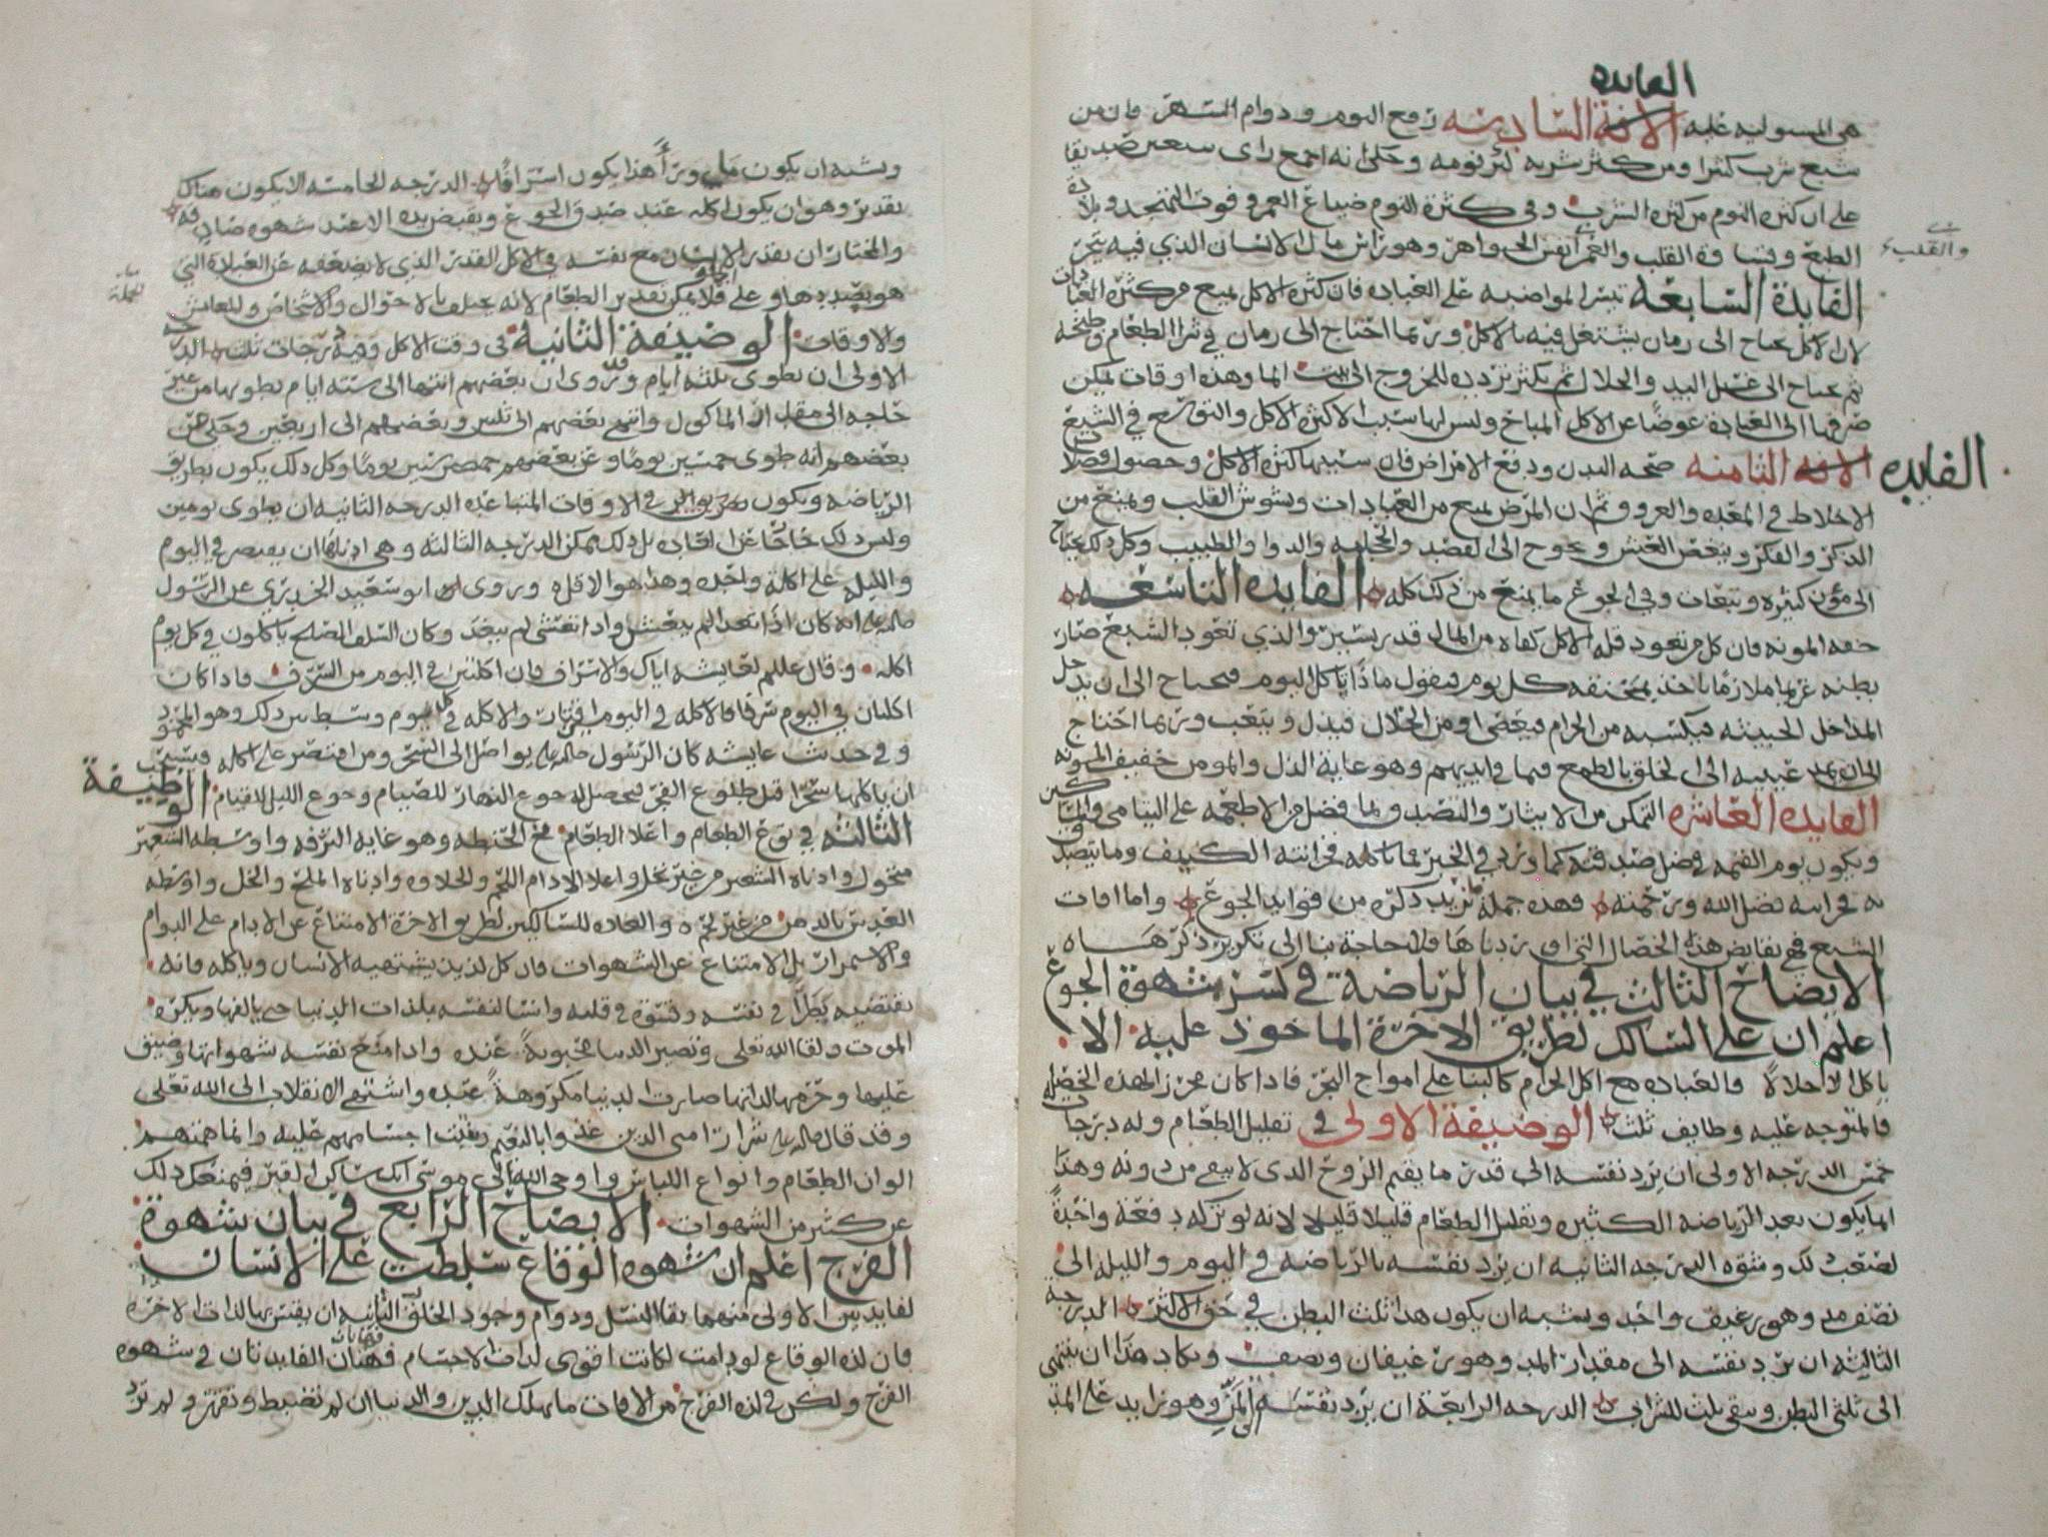 الفايده
هي المسوليه عليه الافة السادسه رفع النوم ودوام السهر فان من
شبع شرب كثيرا ومن كثر شربه كثر نومه وحكي انه اجمع راى سبعين صديقا
على ان كثره النوم من كثره الشرب وفي كثرة النوم ضياع العمر وفوت التهجد وبلادة
الطبع وقساوة القلب والعمر انفس الجواهر وهو راس مال الانسان الذي فيه يتجر
والقلب
الفايدة السابعه تيسر المواضبه على العباده فان كثرة الاكل تمنع من كثره العبادات
لان الاكل يحتاج الى زمان يشتغل فيه بالاكل وربما احتاج الى زمان في شرا الطعام وطبخه
ثم يحتاج الى غسل اليد والخلال ثم يكثر تردده للخروج الى بيت الما وهذه اوقات يمكن
صرفها الى العبادة عوضا عن الاكل المباح وليس لها سبب الا كثرة الاكل والتوسع في الشبع
الفايده الافه الثامنه صحه البدن ودفع الامراض فان سببها كثره الاكل وحصول فضلات
الاخلاط في المعده والعروق ثم ان المرض يمنع من العبادات ويشوش القلب ويمنع من
الذكر والفكر وينغص العيش ويحوج الى الفصد والحجامه والدوا والطبيب وكل ذلك يحتاج
الى مؤن كثيره وتبعات وفي الجوع ما يمنع من ذلك كله الفايده التاسعه
خفه المونه فان كل من تعود قله الاكل كفاه من المال قدر يسير والذي تعود الشبع صار
بطنه غريما ملازما ياخذ بمخنقه كل يوم فيقول ماذا ياكل اليوم فيحتاج الى ان يدخل
المداخل الخبيثه فيكتسبه من الحرام فيعصي او من الحلال فيذل ويتعب وربما احتاج
الى ان يمد عينيه الى الخلق بالطمع فيما في ايديهم وهو غاية الذل والمومن خفيف المونه
الفايده العاشره التمكن من الايثار والتصدق بما فضل من الاطعمه على اليتامى والمساكين
ويكون يوم القيمه في ضل صدقته كما ورد في الخبر فما ياكله خزانته الكنيف وما يتصدق
به خزانته فضل الله ورحمته فهذه جملة نريد ذكره من فوايد الجوع واما افات
الشبع فهي نقايض هذه الخصال التي اوردناها فلا حاجة بنا الى تكرير ذكرها
الايضاح الثالث في بيان الرياضة في كسر شهوة الجوع
اعلم ان على السالك لطريق الاخرة الماخوذ عليه الا
ياكل الا حلالا والعباده مع اكل الحرام كالبنا على امواج البحر فاذا كان محرزا لهذه الخصله
فالمتوجه عليه وظايف ثلث الوضيفة الاولى في تقليل الطعام وله درجات
خمس الدرجه الاولى ان يرد نفسه الى قدر ما يقيم الروح الذي لا يبقى من دونه وهذا
انما يكون بعد الرياضه الكثيره وتقليل الطعام قليلا قليلا لانه لو تركه دفعة واحدة
لصعب ذلك وشق الدرجه الثانيه ان يرد نفسه بالرياضه في اليوم والليله الى
نصف مد وهو رغيف واحد ويشبه ان يكون هذا ثلث البطن في حق الاكثر الدرجة
الثالثه ان يرد نفسه الى مقدار المد وهو رغيفان ونصف ويكاد هذا ان ينتهي
الى ثلثي البطن ويبقى ثلث للشراب الدرجه الرابعة ان يرد نفسه الى المن وهو زايد على المد
ويشبه ان يكون ما ورا هذا يكون اسرافا الدرجه الخامسه الا يكون هناك
تقدير وهو ان يكون اكله عند صدق الجوع ويقبض يده الا عند شهوه صادقه
والمختار ان يقدر الانسان مع نفسه في الاكل القدر الذي لا يضعفه عن العبادة التي
هو بصددها وعلى الجملة فلا يمكن تقدير الطعام لانه يختلف بالاحوال والاشخاص
والاوقات الوضيفة الثانية في وقت الاكل وفيه درجات ثلث الدرجه
الاولى ان يطوى ثلثه ايام وقد روى ان بعضهم انتها الى سته ايام يطويها من غير
حاجه الى مقدار الماكول وانتهى بعضهم الى ثلثين وبعضهم الى اربعين وحكي عن
بعضهم انه طوى خمسين يوما وعن بعضهم خمسه وستين يوما وكل ذلك يكون بطريق
الرياضه ويكون في الاوقات المتباعده الدرجه الثانيه ان يطوى يومين
وليس ذلك خارجا عن العاده بل ذلك ممكن الدرجه الثالثه وهي ادناها ان يقتصر في اليوم
والليله على اكلة واحده وهذا هو الاقل وروى ابو سعيد الخدري عن الرسول
صلى الله عليه انه كان اذا تغدا لم يتعش واذا تعشى لم يتغد وكان السلف الصلح ياكلون في كل يوم
اكله وقال عللم لعايشه اياك والاسراف فان اكلتين في اليوم من السرف فاذا كان
اكلتان في اليوم سرفا فالاكله في اليومين اقتار والاكله في كل يوم وسط بين ذلك وهو المحمود
وفي حديث عايشه كان الرسول صلى الله عليه يواصل الى السحر ومن اقتصر على اكله فيستحب
ان ياكلها سحرا قبل طلوع الفجر فيحصل له جوع النهار للصيام وجوع الليل للقيام الوظيفة
الثالثه في نوع الطعام واعلا الطعام مخ الحنطه وهو غايه الترفه واوسطه الشعير
منخول وادناه الشعير من غير نخل واعلا الادام اللحم والحلاوه وادناه الملح والخل واوسطه
العدس بالدهن من غير لحم والعاده للسالكين لطريق الاخرة الامتناع عن الادام على الدوام
والاسمرار بل الامتناع عن الشهوات فان كل لذيذ يشتهيه الانسان وياكله فانه
يقتضيه بطرا في نفسه وقسوة في قلبه وانسا لنفسه بلذات الدنيا حتى يالفها ويكره
الموت ولقا الله تعلى وتصير الدنيا محبوبة عنده واذا منع نفسه شهواتها وضيق
عليها وحرمها لذاتها صارت الدنيا مكروهة عنده واشتهى الانقلاب الى الله تعلى
وقد قال صلى الله عليه شرار امتي الذين غذوا بالنعيم ونبتت اجسامهم عليه وانما همتهم
الوان الطعام وانواع اللباس واوحى الله الى موسى انك ساكن القبر فيمنعك ذلك
عن كثير من الشهوات الايضاح الرابع في بيان شهوة
الفرج اعلم ان شهوه الوقاع سلطت على الانسان
لفايدتين الاولى منهما بقا النسل ودوام وجود الخلق الثانيه ان يقيس بها لذات الاخره
فان لذه الوقاع لو دامت لكانت اقوى لذات الاجسام فهاتان الفايدتان في شهوه
الفرج ولكن في لذه الفرج من الافات ما يهلك الدين والدنيا ان لم تضبط وتقهر ولم ترد